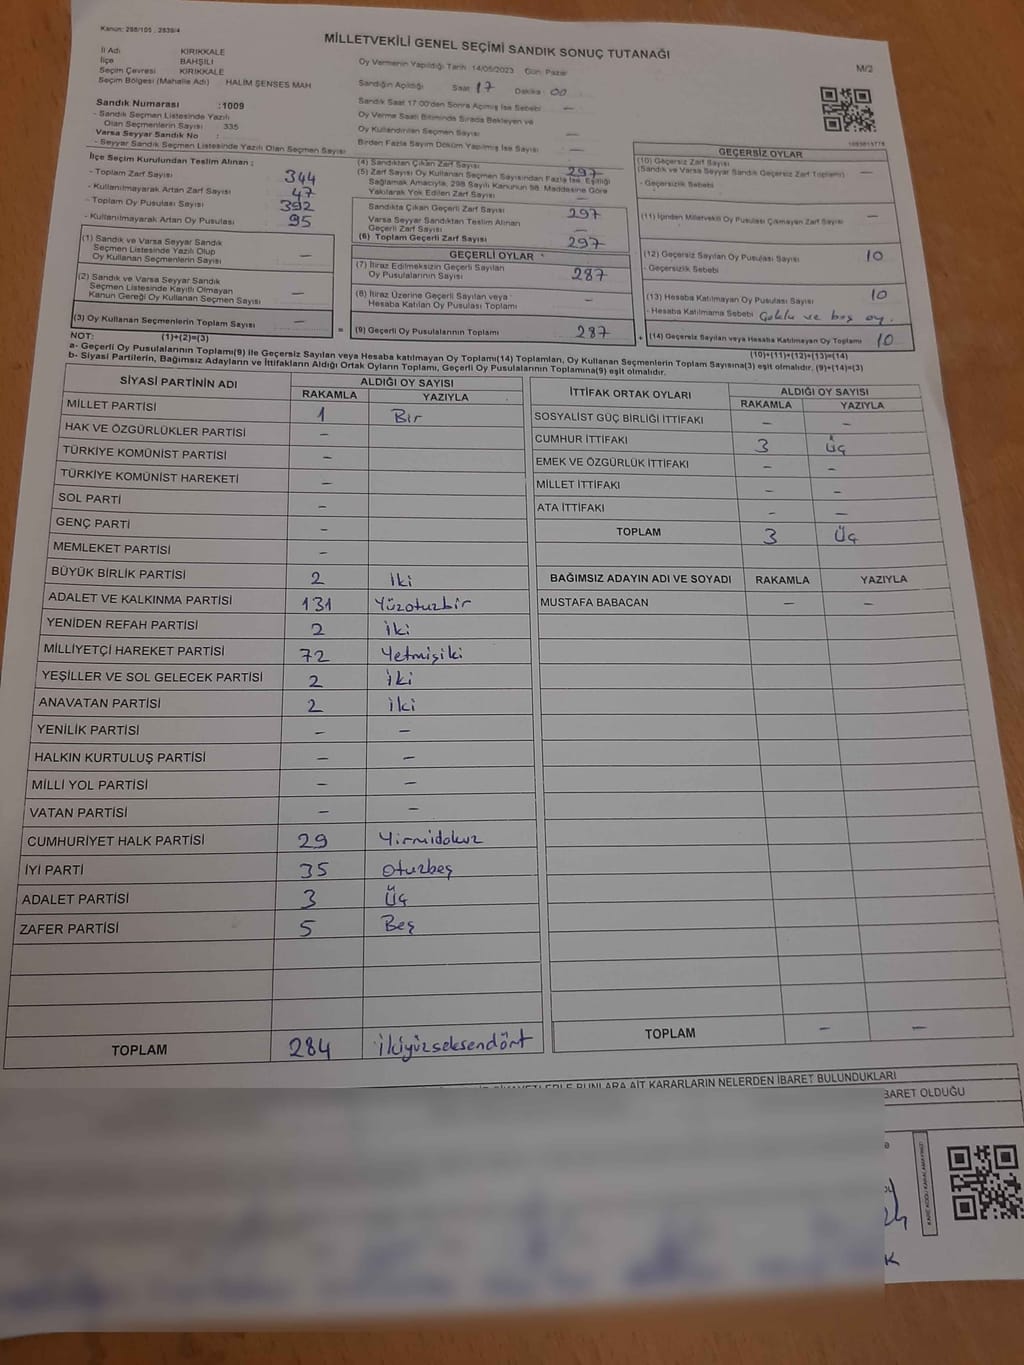 Kanun: 298/105 , 2839/4
MİLLETVEKİLİ GENEL SEÇİMİ SANDIK SONUÇ TUTANAĞI
M/2
İl Adı KIRIKKALE
İlçe BAHŞILI
Seçim Çevresi KIRIKKALE
Seçim Bölgesi (Mahalle Adı) HALİM ŞENSES MAH
Oy Vermenin Yapıldığı Tarih :14/05/2023 Gün: Pazar
Sandığın Açıldığı Saat 17 Dakika 00
Sandık Saat 17:00'den Sonra Açılmış İse Sebebi —
Oy Verme Saati Bitiminde Sırada Bekleyen ve
Oy Kullandırılan Seçmen Sayısı —
Birden Fazla Sayım Döküm Yapılmış İse Sayısı —
Sandık Numarası :1009
- Sandık Seçmen Listesinde Yazılı
Olan Seçmenlerin Sayısı 335
Varsa Seyyar Sandık No :
- Seyyar Sandık Seçmen Listesinde Yazılı Olan Seçmen Sayısı
İlçe Seçim Kurulundan Teslim Alınan :
- Toplam Zarf Sayısı 344
- Kullanılmayarak Artan Zarf Sayısı 47
- Toplam Oy Pusulası Sayısı 392
- Kullanılmayarak Artan Oy Pusulası 95
(1) Sandık ve Varsa Seyyar Sandık
Seçmen Listesinde Yazılı Olup
Oy Kullanan Seçmenlerin Sayısı —
(2) Sandık ve Varsa Seyyar Sandık
Seçmen Listesinde Kayıtlı Olmayan
Kanun Gereği Oy Kullanan Seçmen Sayısı —
(3) Oy Kullanan Seçmenlerin Toplam Sayısı —
(4) Sandıktan Çıkan Zarf Sayısı 297
(5) Zarf Sayısı Oy Kullanan Seçmen Sayısından Fazla İse, Eşitliği
Sağlamak Amacıyla, 298 Sayılı Kanunun 98. Maddesine Göre
Yakılarak Yok Edilen Zarf Sayısı —
Sandıkta Çıkan Geçerli Zarf Sayısı 297
Varsa Seyyar Sandıktan Teslim Alınan
Geçerli Zarf Sayısı —
(6) Toplam Geçerli Zarf Sayısı 297
GEÇERLİ OYLAR
(7) İtiraz Edilmeksizin Geçerli Sayılan
Oy Pusulalarının Sayısı 287
(8) İtiraz Üzerine Geçerli Sayılan veya
Hesaba Katılan Oy Pusulası Toplamı —
= (9) Geçerli Oy Pusulalarının Toplamı 287
GEÇERSİZ OYLAR
(10) Geçersiz Zarf Sayısı
(Sandık ve Varsa Seyyar Sandık Geçersiz Zarf Toplamı) —
- Geçersizlik Sebebi
(11) İçinden Milletvekili Oy Pusulası Çıkmayan Zarf Sayısı —
(12) Geçersiz Sayılan Oy Pusulası Sayısı 10
- Geçersizlik Sebebi
(13) Hesaba Katılmayan Oy Pusulası Sayısı 10
- Hesaba Katılmama Sebebi Çoklu ve boş oy.
+ (14) Geçersiz Sayılan veya Hesaba Katılmayan Oy Toplamı 10
NOT: (1)+(2)=(3) (10)+(11)+(12)+(13)=(14)
a- Geçerli Oy Pusulalarının Toplamı(9) ile Geçersiz Sayılan veya Hesaba katılmayan Oy Toplamı(14) Toplamları, Oy Kullanan Seçmenlerin Toplam Sayısına(3) eşit olmalıdır. (9)+(14)=(3)
b- Siyasi Partilerin, Bağımsız Adayların ve İttifakların Aldığı Ortak Oyların Toplamı, Geçerli Oy Pusulalarının Toplamına(9) eşit olmalıdır.
SİYASİ PARTİNİN ADI ALDIĞI OY SAYISI
RAKAMLA YAZIYLA
MİLLET PARTİSİ 1 Bir
HAK VE ÖZGÜRLÜKLER PARTİSİ —
TÜRKİYE KOMÜNİST PARTİSİ —
TÜRKİYE KOMÜNİST HAREKETİ —
SOL PARTİ —
GENÇ PARTİ —
MEMLEKET PARTİSİ —
BÜYÜK BİRLİK PARTİSİ 2 İki
ADALET VE KALKINMA PARTİSİ 131 Yüzotuzbir
YENİDEN REFAH PARTİSİ 2 iki
MİLLİYETÇİ HAREKET PARTİSİ 72 Yetmişiki
YEŞİLLER VE SOL GELECEK PARTİSİ 2 iki
ANAVATAN PARTİSİ 2 iki
YENİLİK PARTİSİ — —
HALKIN KURTULUŞ PARTİSİ — —
MİLLİ YOL PARTİSİ — —
VATAN PARTİSİ — —
CUMHURİYET HALK PARTİSİ 29 Yirmidokuz
İYİ PARTİ 35 Otuzbeş
ADALET PARTİSİ 3 Üç
ZAFER PARTİSİ 5 Beş
TOPLAM 284 ikiyüzseksendört
İTTİFAK ORTAK OYLARI ALDIĞI OY SAYISI
RAKAMLA YAZIYLA
SOSYALİST GÜÇ BİRLİĞİ İTTİFAKI — —
CUMHUR İTTİFAKI 3 Üç
EMEK VE ÖZGÜRLÜK İTTİFAKI — —
MİLLET İTTİFAKI — —
ATA İTTİFAKI — —
TOPLAM 3 Üç
BAĞIMSIZ ADAYIN ADI VE SOYADI RAKAMLA YAZIYLA
MUSTAFA BABACAN — —
TOPLAM — —
BUNLARA AİT KARARLARIN NELERDEN İBARET BULUNDUKLARI
İBARET OLDUĞU